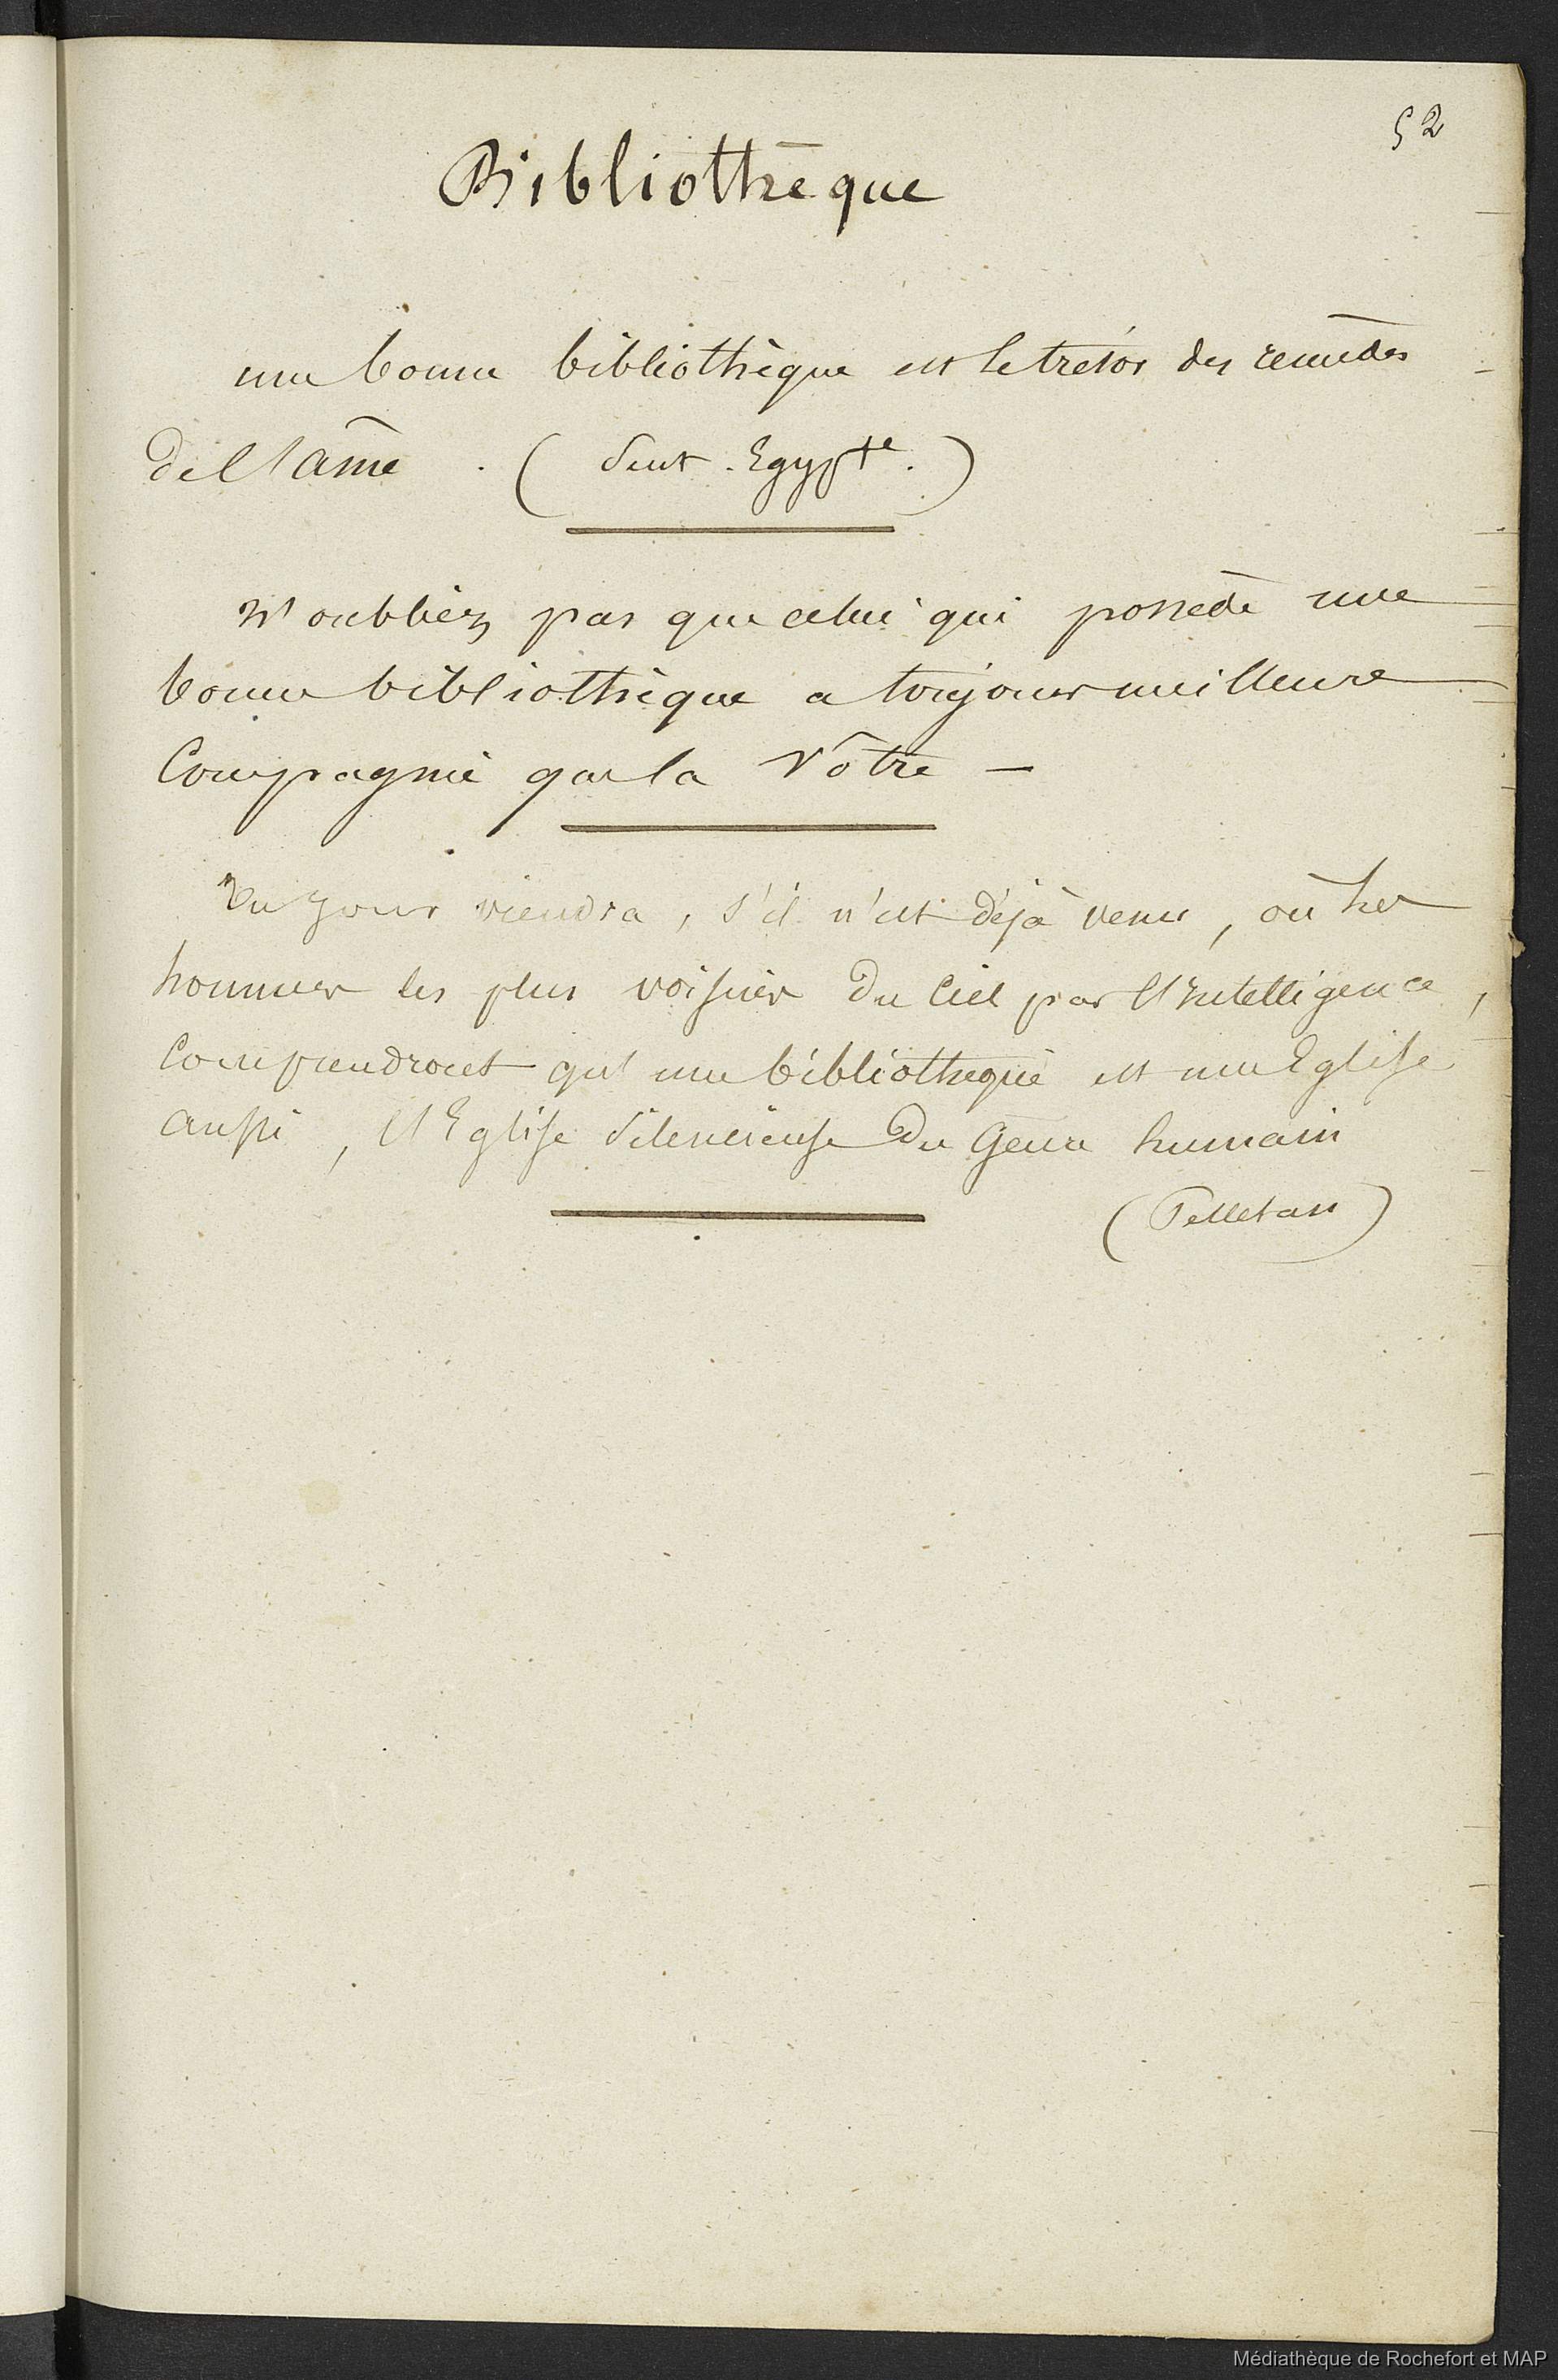 52
Bibliothèque
une bonne bibliothèque est le trésor des remèdes
de l'âme. (Sent. Egypte.)
N'oubliez pas que celui qui possède une
bonne bibliothèque a toujours meilleure
Compagnie que la vôtre —
Un jour viendra, s'il n'est déjà venu, où les
hommes les plus voisins du Ciel par l'Intelligence,
Comprendront qu'une bibliothèque est une Eglise
aussi, l'Eglise silencieuse du Genre humain
(Pelletan)
Médiathèque de Rochefort et MAP